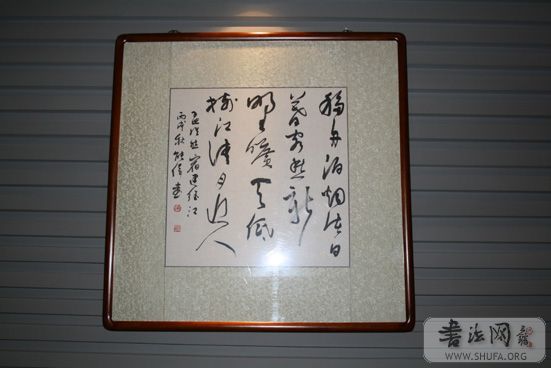 移舟泊烟渚日
暮客愁新
野曠天低
樹江清月近人
孟浩然宿建德江
丙戌秋
書法网
WWW.SHUFA.ORG